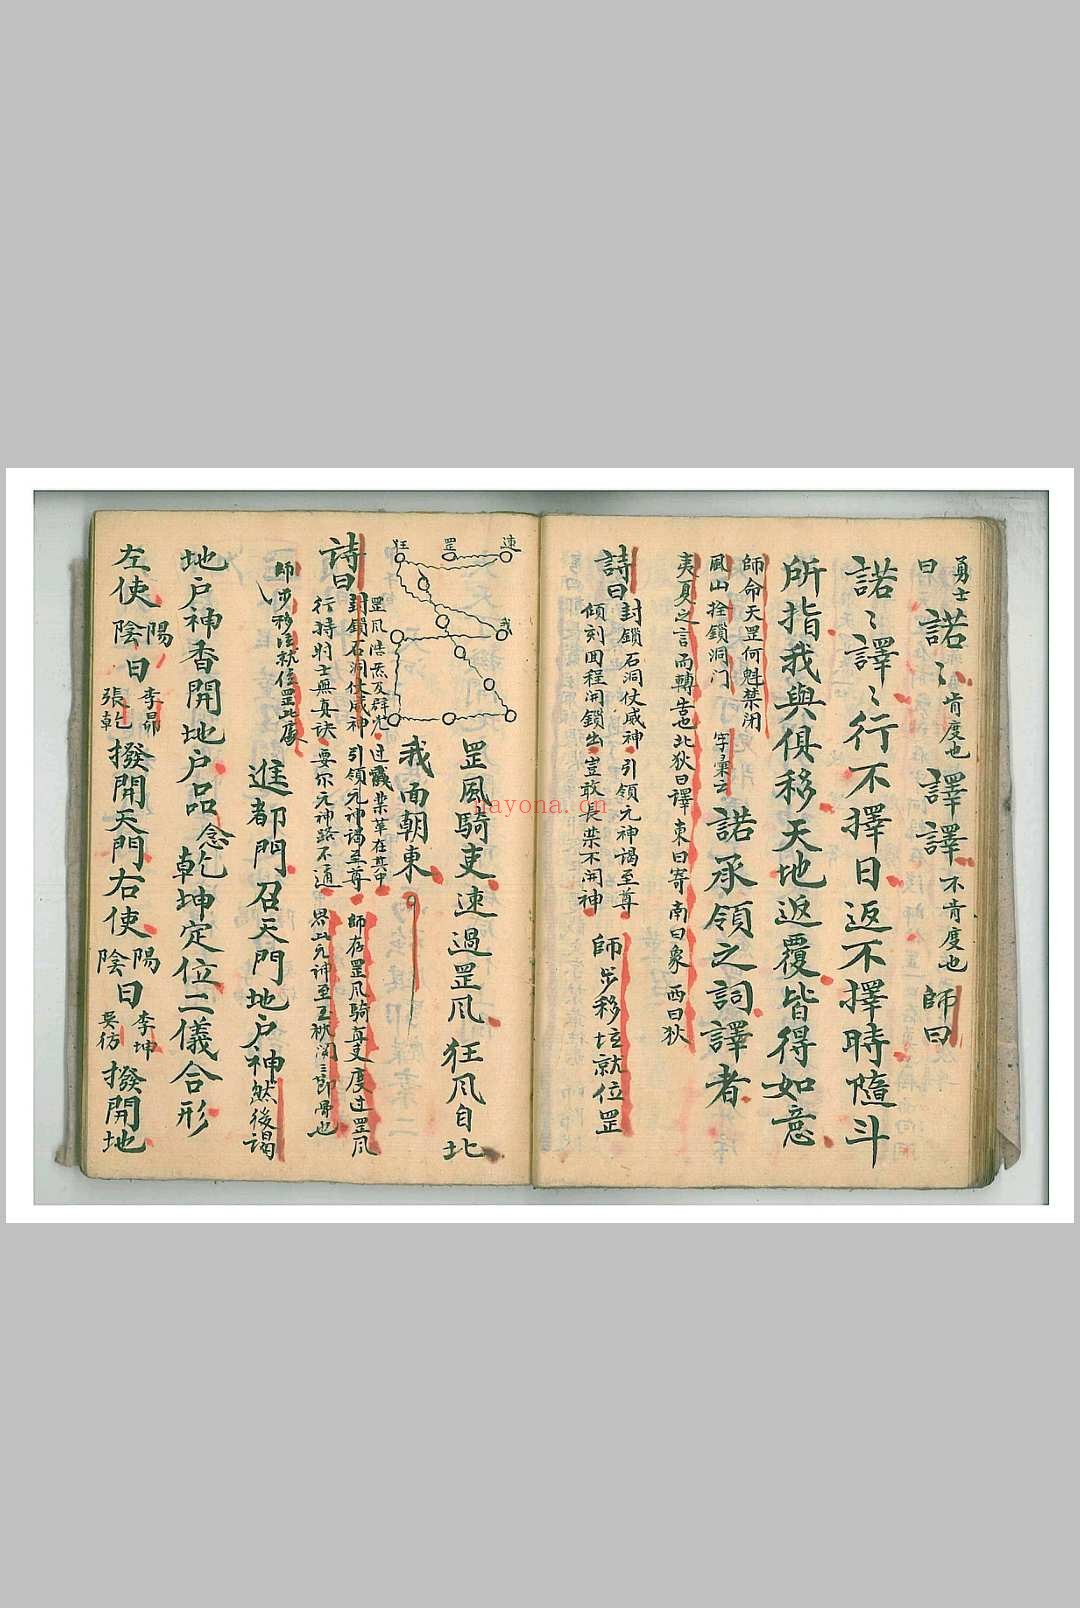 勇士
曰
諾〻肯度也譯譯不肯度也師曰
諾〻譯〻行不擇日返不擇時隨斗
所指我與俱移天地返覆皆得如意
師命天罡何魁禁闭
風山拴鎖洞门
字彙云
諾承領之詞譯者
夷夏之言而轉告也北狄曰譯東曰寄南曰象西曰狄
詩曰
封鎖石洞仗威神引領元神謁至尊
傾刻回程開鎖出豈敢長禁不開神
師步移垃就位罡
速
罡
狂
我
罡風騎吏速過罡凨狂凨自北
我面朝東
詩曰
封鎖石洞仗威神引領元神謁至尊
行持羽士無真诀要尔元神路不通
師存罡凨騎吏度过罡凨
師步移
進都門召天門地户神然後謁
地户神香開地户品念乾坤定位二儀合形
左使
陽
陰
曰
李昴
張乾
撥開天門右使
陽
陰
曰
李坤
吴彷
撥開地
nayona.cn